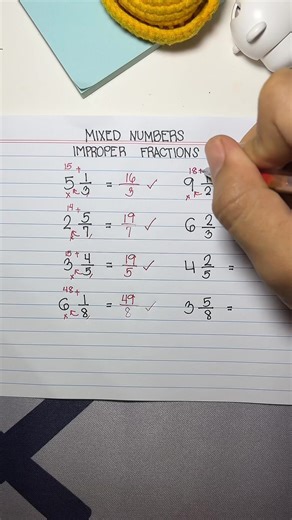 MIXED NUMBERS
IMPROPER FRACTIONS
15 +
5 1/3 = 16/3 ✓
x
14 +
2 5/7 = 19/7 ✓
x
15 +
3 4/5 = 19/5 ✓
x
48 +
6 1/8 = 49/8 ✓
x
18 +
9 /2
x
6 2/3
4 2/5 =
3 5/8 =